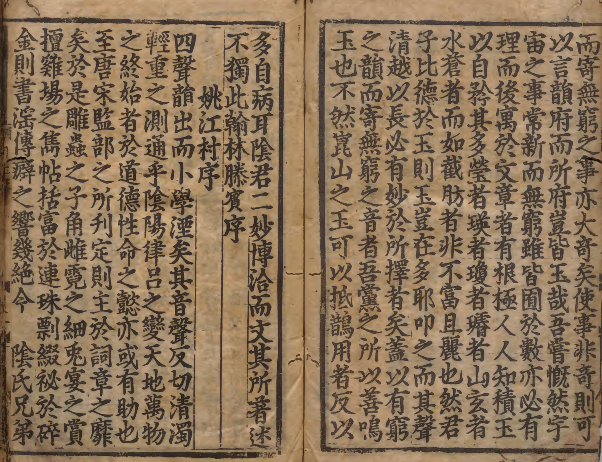 而寄無窮之事亦大奇矣使事非奇則可
以言韻府而所府豈皆玉哉吾嘗慨然宇
宙之事常新而無窮雖皆囿於數亦必有
理而後寓於文章者有根極人人知積玉
以自矜其多瑩者瑛者瓊者璿者山玄者
水蒼者而如截肪者非不富且麗也然君
子比德於玉則玉豈在多耶叩之而其聲
清越以長必有妙於所擇者矣蓋以有窮
之韻而寄無窮之音者吾黨之所以善鳴
玉也不然崑山之玉可以抵鵲用者反以
多自病耳陰君二妙博洽而文其所著述
不獨此翰林滕賓序
姚江村序
四聲韻出而小學湮矣其音聲反切清濁
輕重之測通乎陰陽律呂之變天地萬物
之終始者於道德性命之懿亦或有助也
至唐宋監部之所刋定則主於詞章之靡
矣於是雕蟲之子角雌霓之細兎宴之賞
擅雞場之雋帖括富於連珠剽綴祕於碎
金則書滛傳癖之響幾絶今 陰氏兄弟